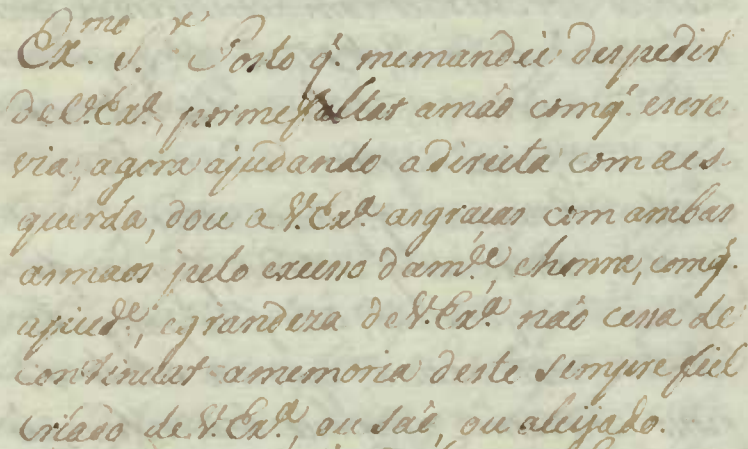 Ex.mo S.r Posto q' memandei despedir
de V. Ex.a, por mefaltar amão comq' escre
via, agora ajudando adireita com aes
querda, dou a V. Ex.a asgraças com ambas
asmaos pelo excesso dam.de, ehonra, comq'
apied.e, egrandeza de V. Ex.a não cessa de
continuar amemoria deste sempre fiel
criado de V. Ex.a, ou saõ, ou aleijado.